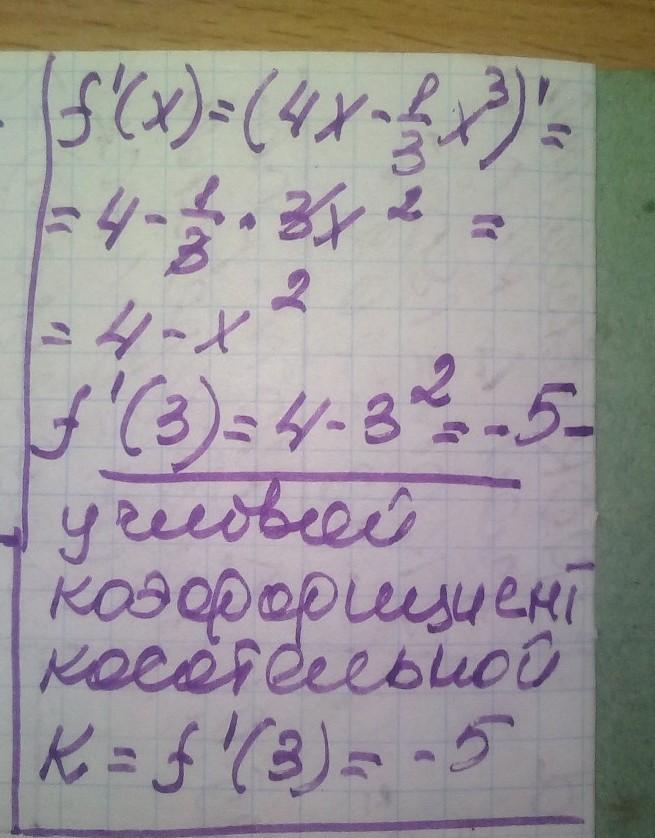 f'(x) = (4x - 1/3 x³)' =
= 4 - 1/3 · 3x² =
= 4 - x²
f'(3) = 4 - 3² = -5 -
угловой
коэффициент
касательной
K = f'(3) = -5